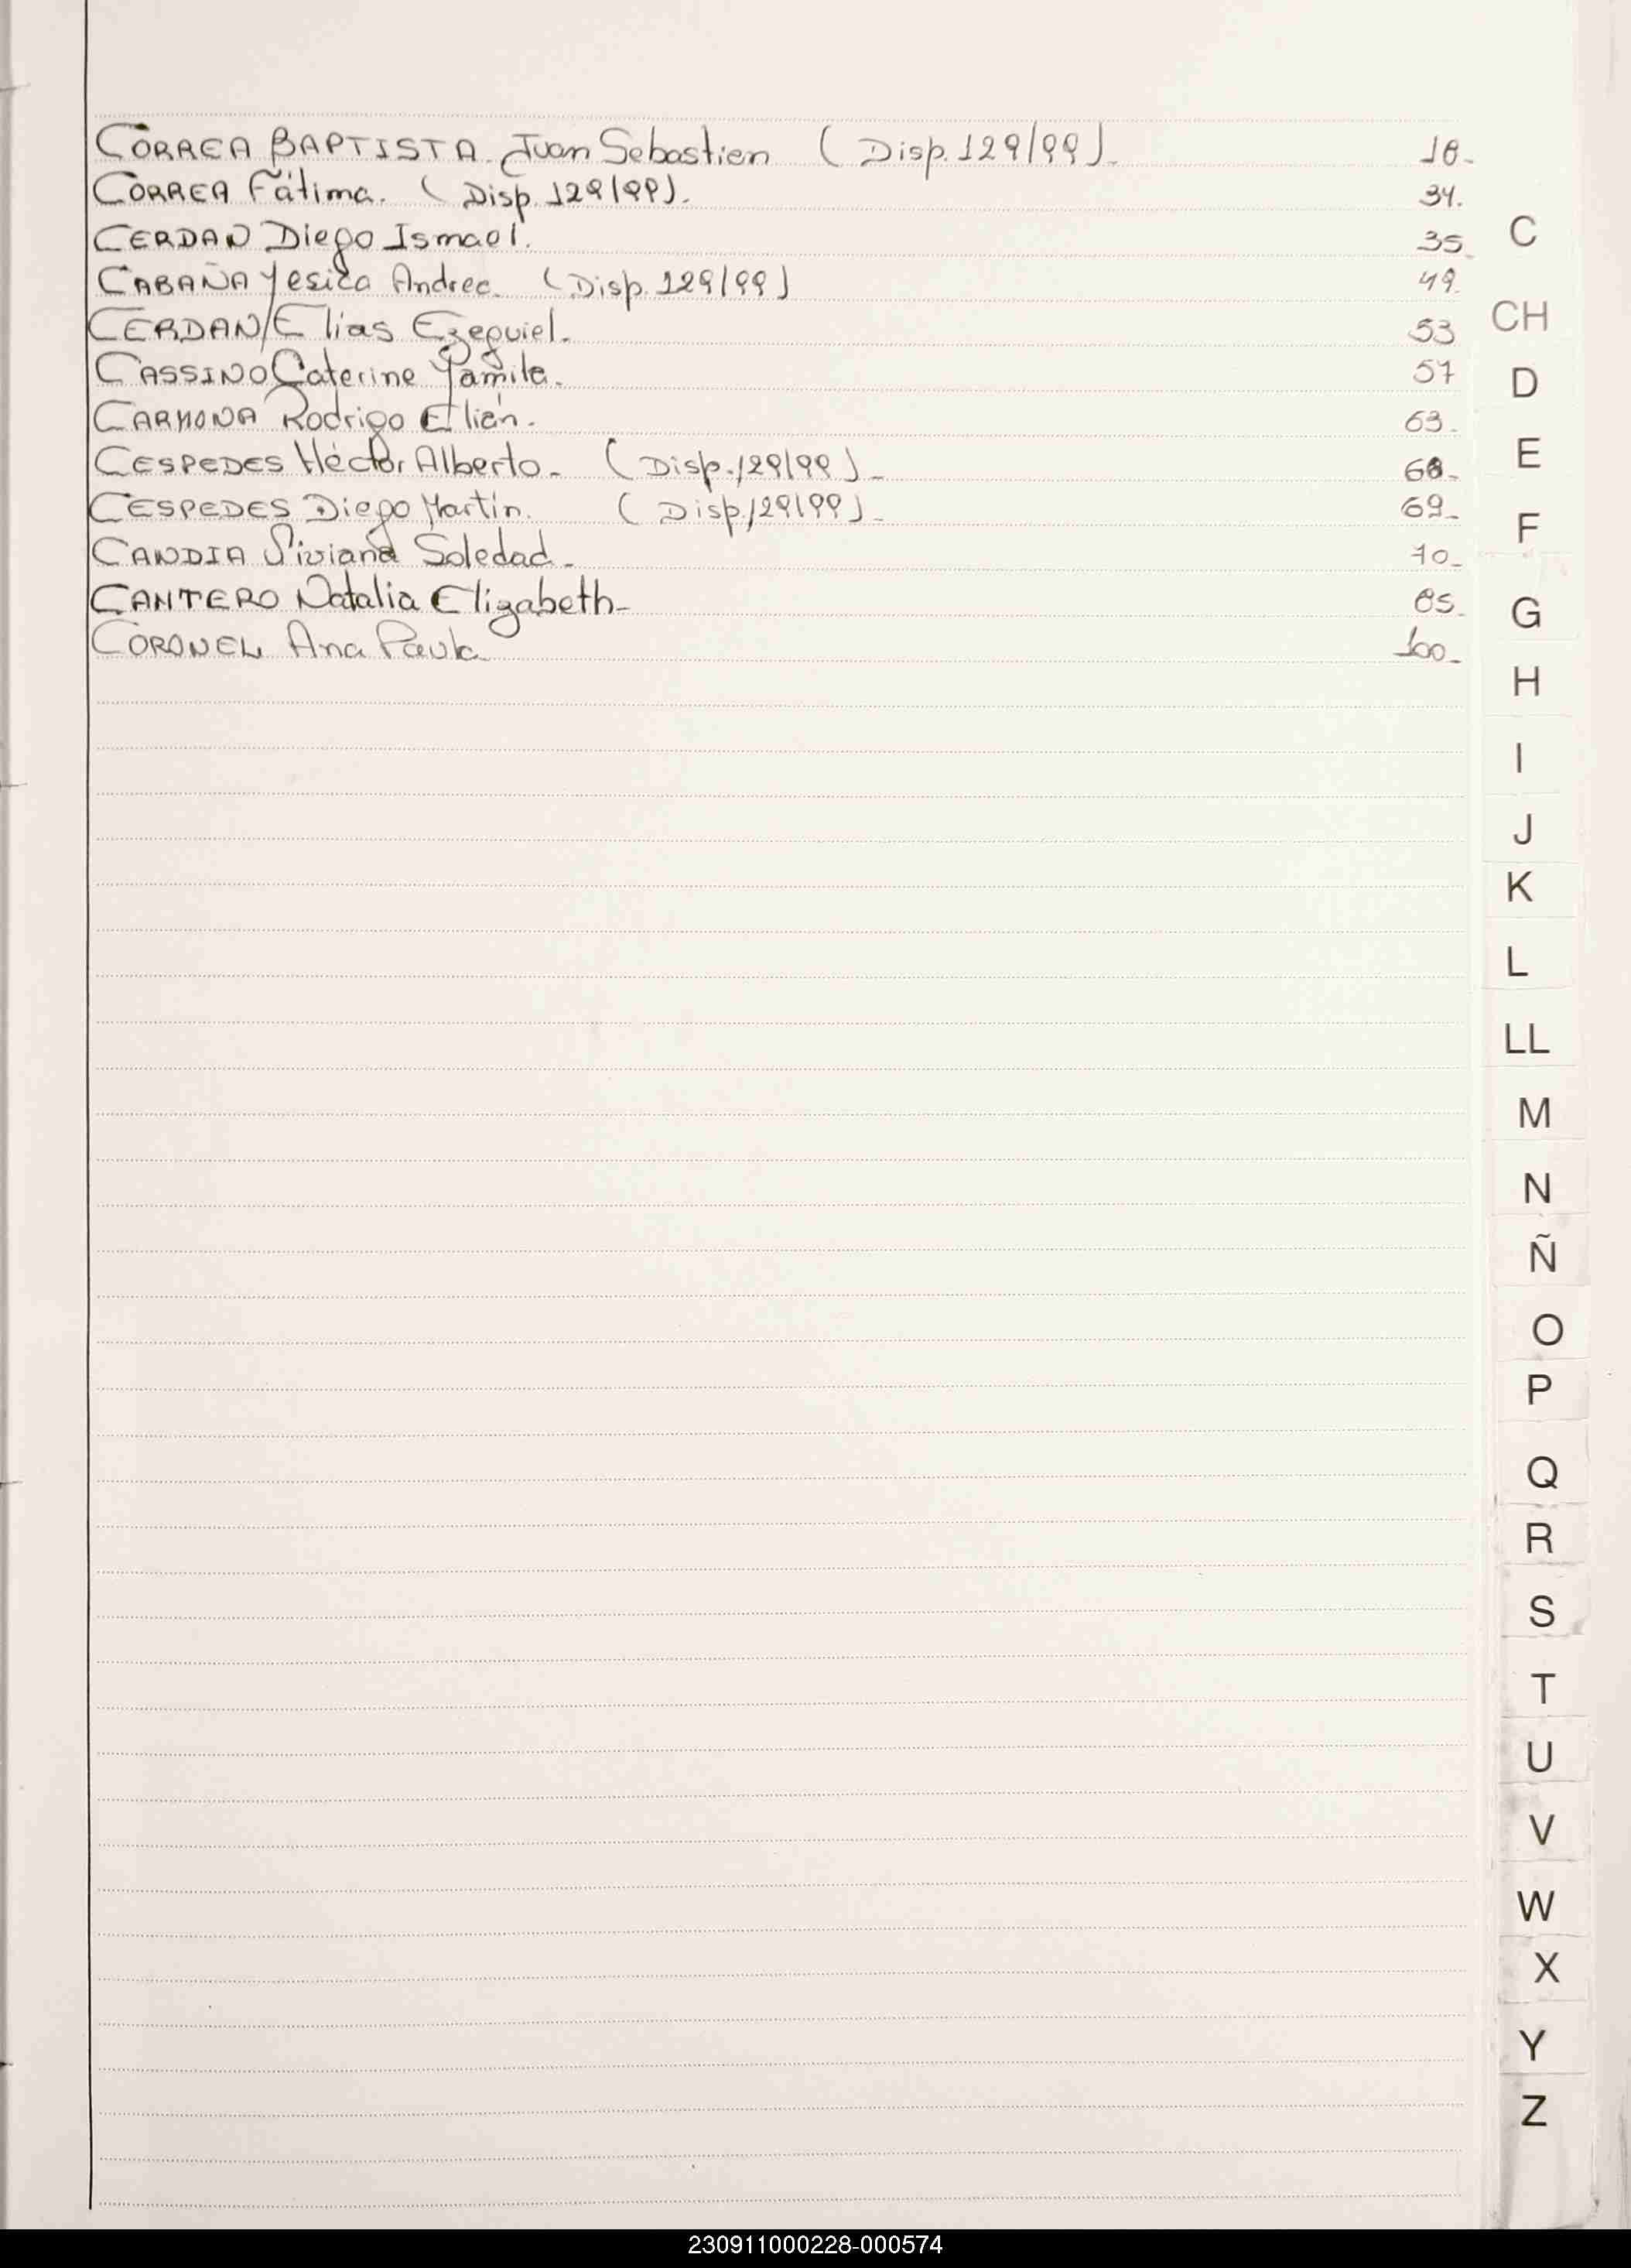 CORREA BAPTISTA Juan Sebastien (Disp. 129/99). 18.
CORREA Fátima. (Disp. 129/99). 34.
CERDAN Diego Ismael. 35.
CABAÑA Yesica Andrea. (Disp. 129/99) 49.
CERDAN/Elias Ezequiel. 53
CASSINO Caterine Yamila. 57
CARMONA Rodrigo Elián. 63.
CESPEDES Héctor Alberto. (Disp. 129/99). 68.
CESPEDES Diego Martín. (Disp. 129/99). 69.
CANDIA Viviana Soledad. 70.
CANTERO Natalia Elizabeth. 85.
CORONEL Ana Paula 100.
C
CH
D
E
F
G
H
I
J
K
L
LL
M
N
Ñ
O
P
Q
R
S
T
U
V
W
X
Y
Z
230911000228-000574